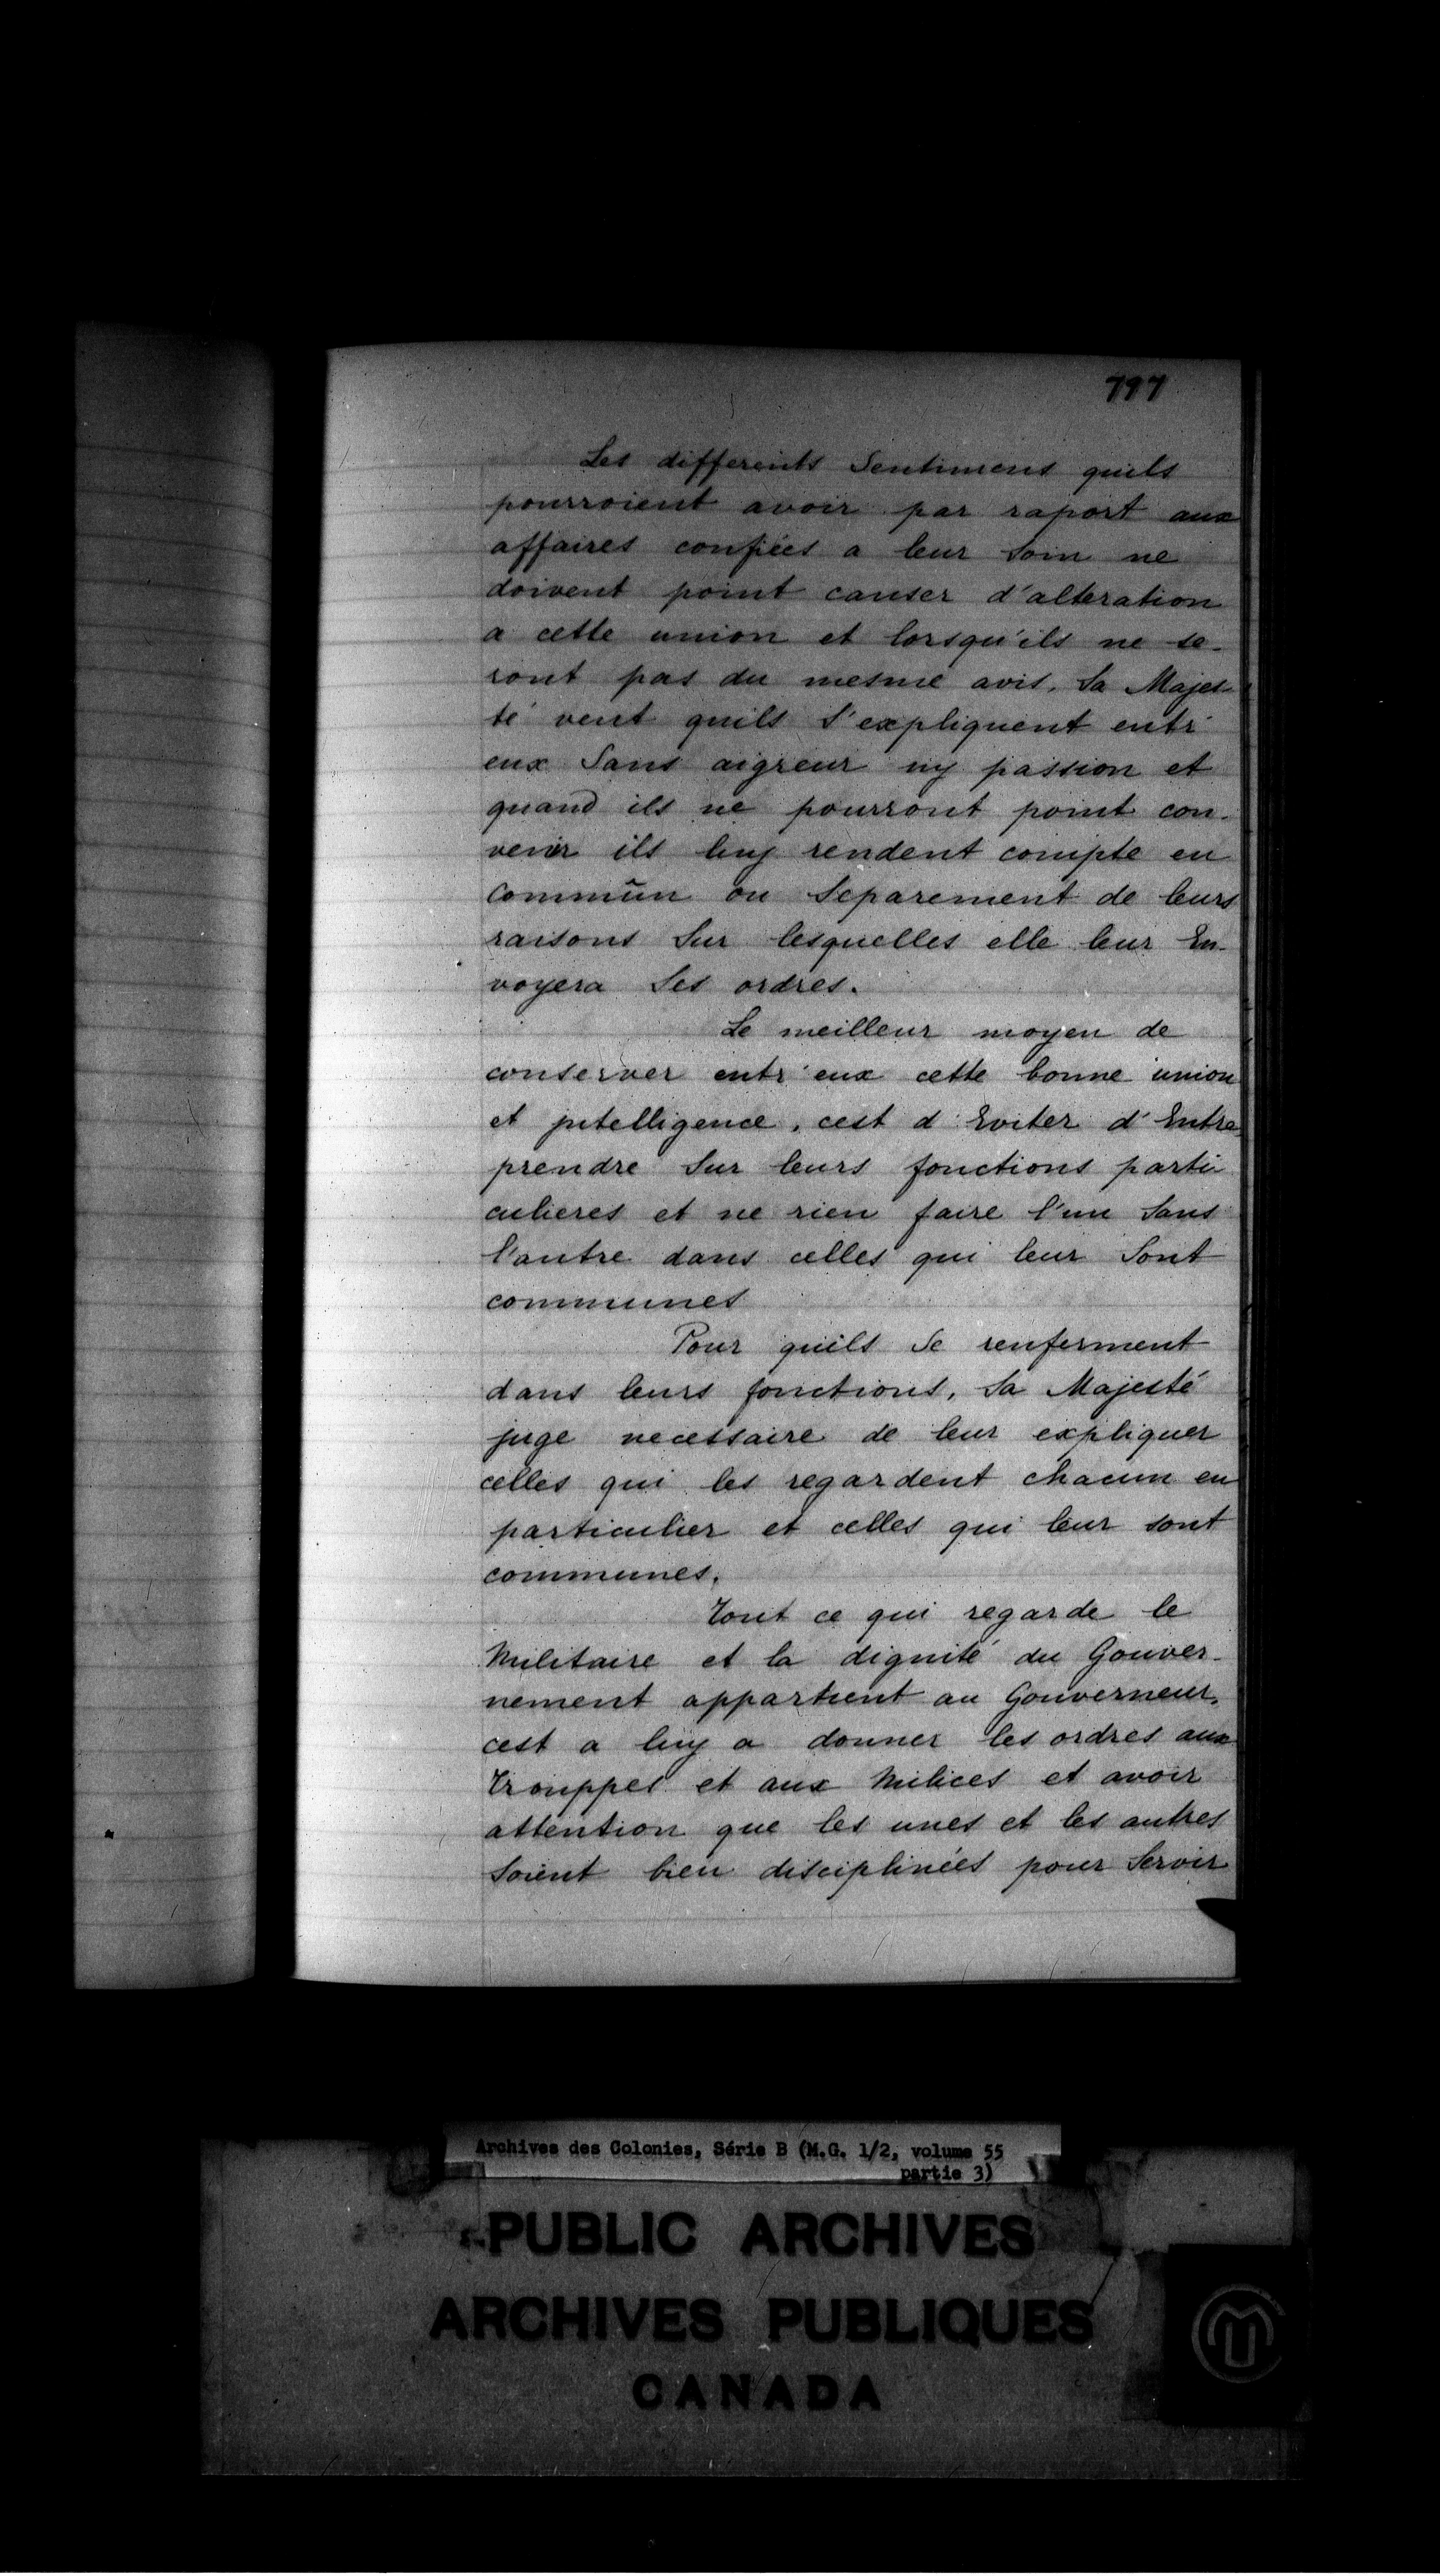 797
Les differents Sentimens quils
pourroient avoir par raport aux
affaires confiées a leur Soin ne
doivent point causer d'alteration
a cette union et lorsqu'ils ne se-
ront pas du mesme avis, Sa Majes-
té veut quils S'expliquent entr'
eux Sans aigreur ny passion et
quand ils ne pourront point con-
venir ils luy rendent compte en
Commun ou Separement de leurs
raisons Sur lesquelles elle leur En-
voyera Ses ordres.
Le meilleur moyen de
conserver entr'eux cette bonne union
et jntelligence, cest d'Eviter d'Entre-
prendre Sur leurs fonctions parti-
culieres et ne rien faire l'un Sans
l'autre dans celles qui leur Sont
communes
Pour quils Se renferment
dans leurs fonctions, Sa Majesté
juge necessaire de leur expliquer
celles qui les regardent chacun en
particulier et celles qui leur sont
communes.
Tout ce qui regarde le
Militaire et la dignité du Gouver-
nement appartient au Gouverneur,
cest a luy a donner les ordres aux
Trouppes et aux Milices et avoir
attention que les unes et les autres
Soient bien disciplinées pour Servir
Archives des Colonies, Série B (M.G. 1/2, volume 55
partie 3)
PUBLIC ARCHIVES
ARCHIVES PUBLIQUES
CANADA